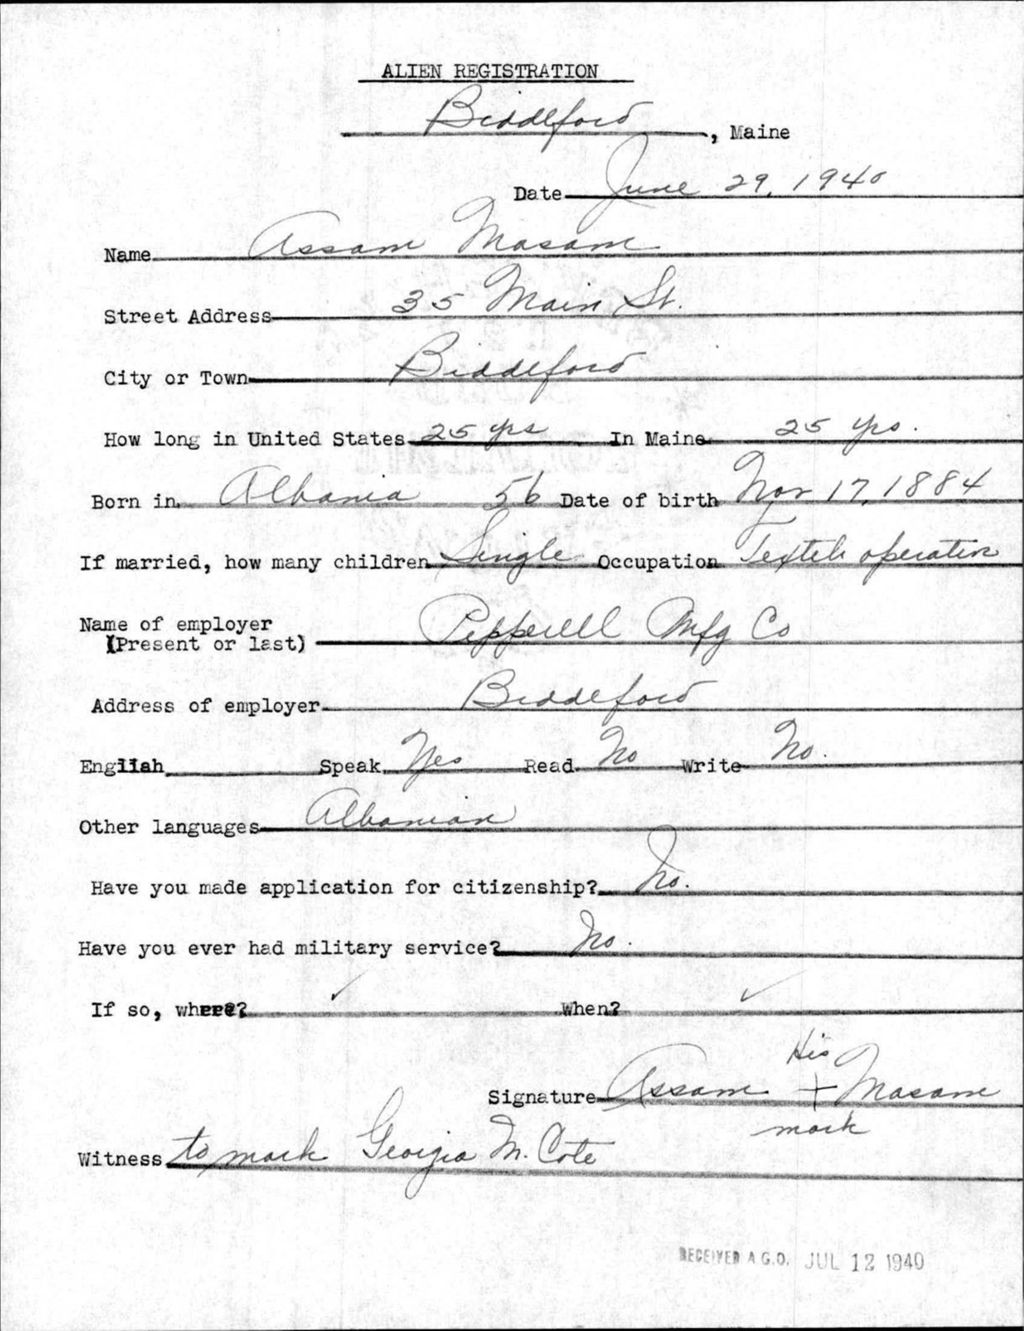 ALIEN REGISTRATION
Biddeford, Maine
Date June 29, 1940
Name Assam Masam
Street Address 35 Main St.
City or Town Biddeford
How long in United States 25 yrs In Maine 25 yrs.
Born in Albania 56 Date of birth Nov 17, 1884
If married, how many children Single Occupation Textile operative
Name of employer
(Present or last) Pepperell Mfg Co
Address of employer Biddeford
English Speak Yes Read No Write No.
Other languages Albanian
Have you made application for citizenship? No.
Have you ever had military service? No.
If so, where? ✓ When? ✓
His
Signature Assam + Masam
mark
Witness to mark Georgia M. Cote
RECEIVED A.G.O. JUL 12 1940